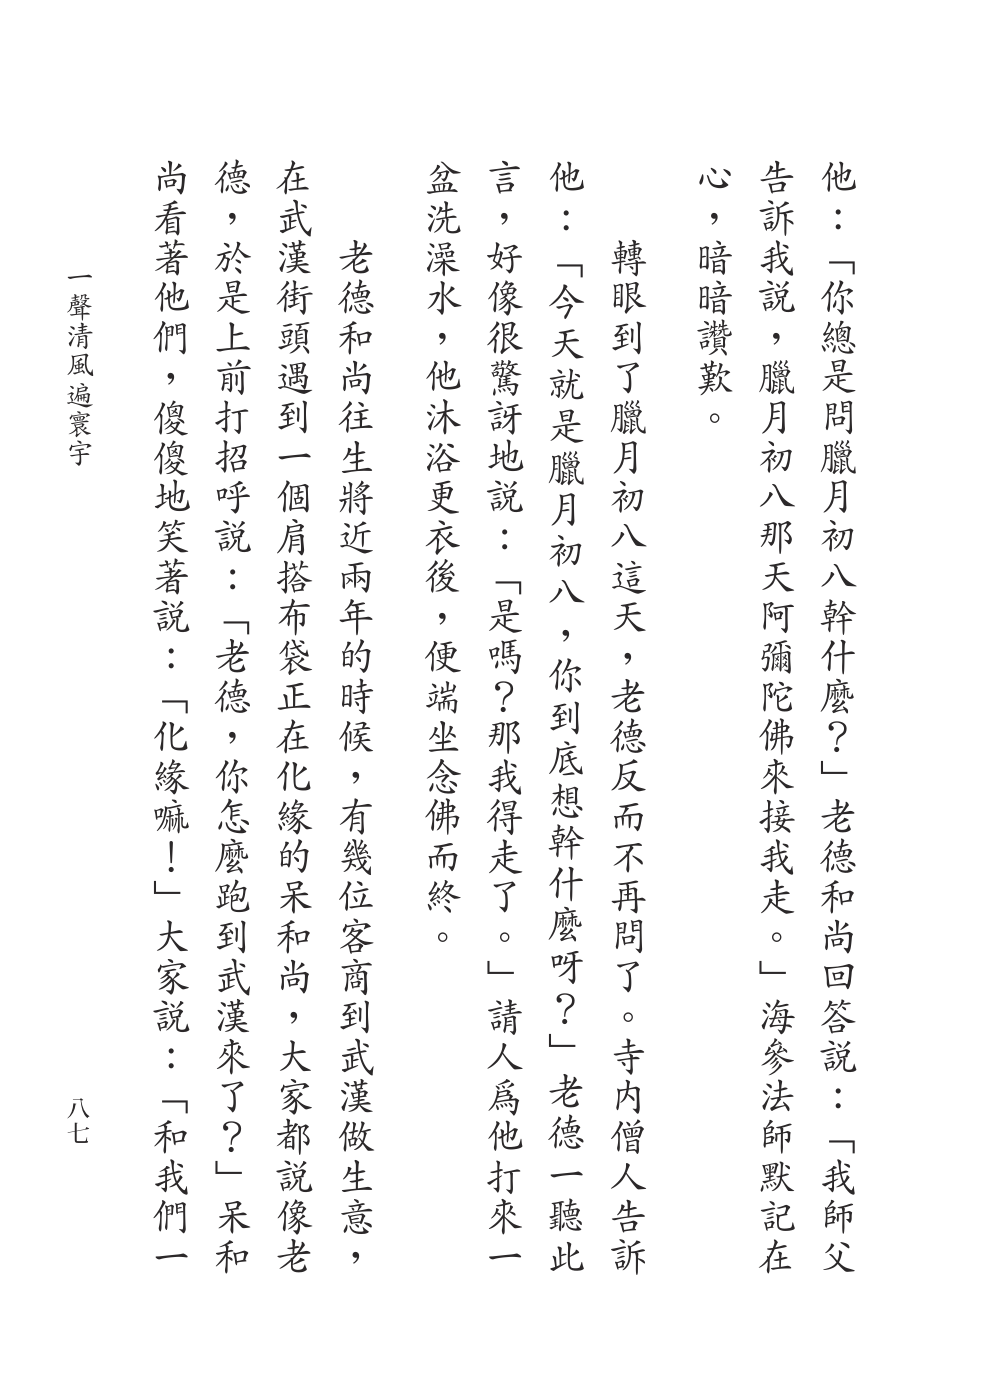 他：「你總是問臘月初八幹什麼？」老德和尚回答説：「我師父
告訴我説，臘月初八那天阿彌陀佛來接我走。」海參法師默記在
心，暗暗讚歎。
轉眼到了臘月初八這天，老德反而不再問了。寺内僧人告訴
他：「今天就是臘月初八，你到底想幹什麼呀？」老德一聽此
言，好像很驚訝地説：「是嗎？那我得走了。」請人爲他打來一
盆洗澡水，他沐浴更衣後，便端坐念佛而終。
老德和尚往生將近兩年的時候，有幾位客商到武漢做生意，
在武漢街頭遇到一個肩搭布袋正在化緣的呆和尚，大家都説像老
德，於是上前打招呼説：「老德，你怎麼跑到武漢來了？」呆和
尚看著他們，傻傻地笑著説：「化緣嘛！」大家説：「和我們一
一聲清風遍寰宇
八七